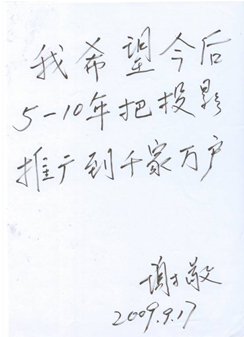 我希望今后
5-10年把投影
推广到千家万户
谢敬
2009.9.17